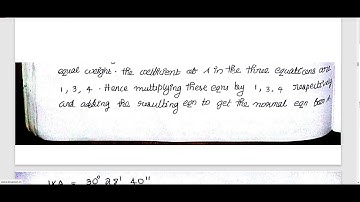 equal weight. the coefficient of A in the three equations are
1, 3, 4. Hence multiplying these eqns by 1, 3, 4 respectively
and adding the resulting eqn to get the normal eqn for A
= 30° 28' 40"